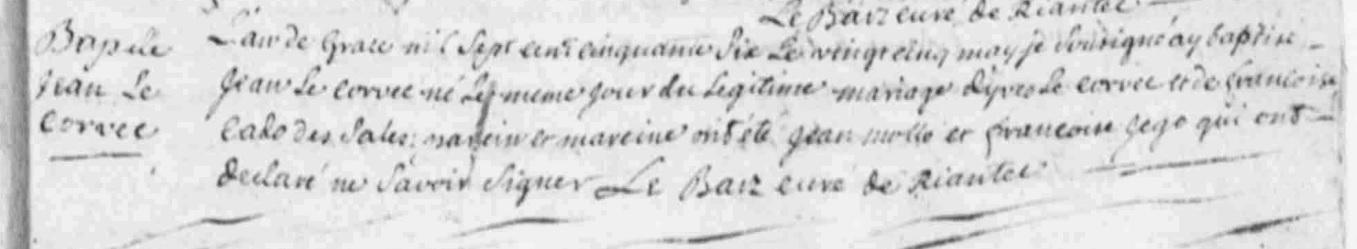 Le Barz curé de Riantec
Bap de
Jean Le
Corvec
L'an de Grace mil Sept cent cinquante Six Le vingt cinq may je Sousigné ay baptisé
Jean Le Corvec né Le meme jour du Legitime mariage d'yves Le Corvec et de francoise
Cado des Sales; parein et mareine ont été Jean mollo et francoise Jego qui ont
declaré ne Savoir Signer Le Barz curé de Riantec